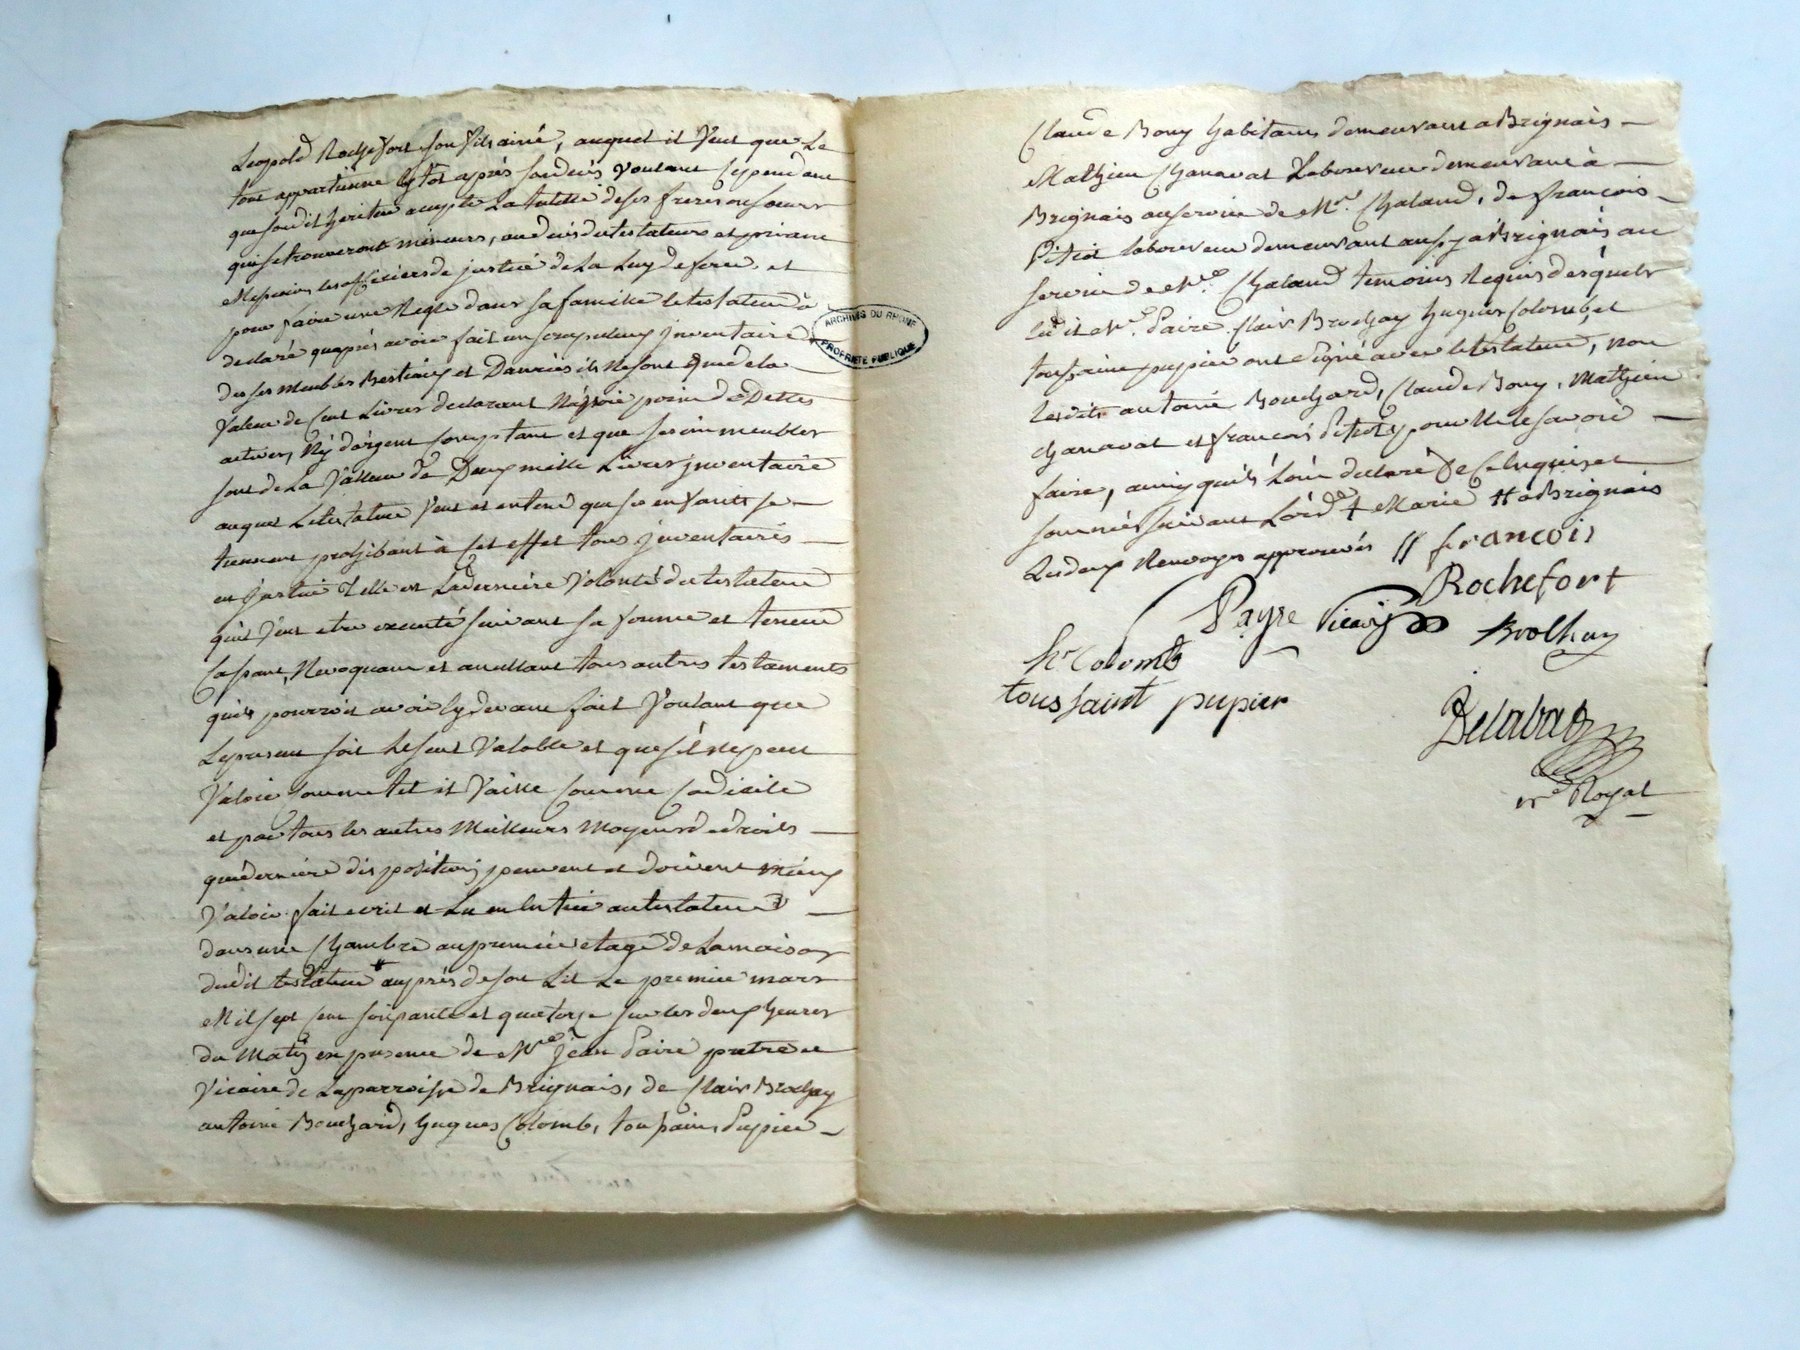 Leopold Rochefort son fils ainé, auquel il veut que le
tout appartienne sytôt après son decès voulant cependant
que sondit heritier accepte la tutelle de ses freres ou soeurs
qui se trouveront mineurs, au decès du testateur et priant
Messieurs les officiers de justice de La
pour faire une Regle dans sa famille le testateur a
declaré qu'après avoir fait un scrupuleux jnventaire
de ses meubles Bestiaux et Danrées ils ne sont que de la
valeur de Cent Livres declarant N'avoir point de Dettes
actives, Ny d'argent comptant et que ses immeubles
sont de La Valleur de Deux mille Livres jnventaire
auquel Le testateur veut et entend que ses enfants se
tiennent prohibant à cet effet tous jnventaires
en justice telle est La derniere volonté du testateur
qu'il veut etre executé suivant sa forme et teneur
Cassant, Revoquant et anullant tous autres testaments
qu'il pourroit avoir cy devant fait voulant que
Le present soit Le seul valable et que s'il ne peut
valoir comme tel il vaille comme codicile
et par tous les autres Meilleurs Moyens de droits
que derniere disposition peuvent et doivent mieux
valoir. fait ecrit et Lu en entier au testateur
dans une Chambre au premier etage de La maison
dudit testateur # auprès de son Lit Le premier mars
Mil sept cent soixante et quatorze sur les deux heures
du Matin en presence de Mre jean Paire pretre et
vicaire de La parroisse de Brignais, de Clair Brochay
antoine Bouchard, hugues Colomb, toussaint Pupier
Claude Bony habitants demeurant a Brignais
Mathieu Chanavat Laboureur demeurant à
Brignais au service de Mr. Chaland, de françois
Pitiot laboureur demeurant aussy à Brignais au
service de Mr. Chaland temoins Requis desquels
ledit Mre Paire, Clair Brochay hugues Colomb, et
toussaint pupier ont signé avec le testateur, non
lesdits antoine Bouchard, Claude Bony, Mathieu
chanavat et françois Pitiot pour ne le savoir
faire, ainsy qu'ils L'ont declaré de ce enquis et
sommés suivant L'ordce + Marie # a Brignais
Les deux Renvoys approuvés // francois
Rochefort
Payre vicaire Brolhay
hs Colomb
toussaint pupier
Delabat
nre Royal
ARCHIVES DU RHÔNE
PROPRIÉTÉ PUBLIQUE